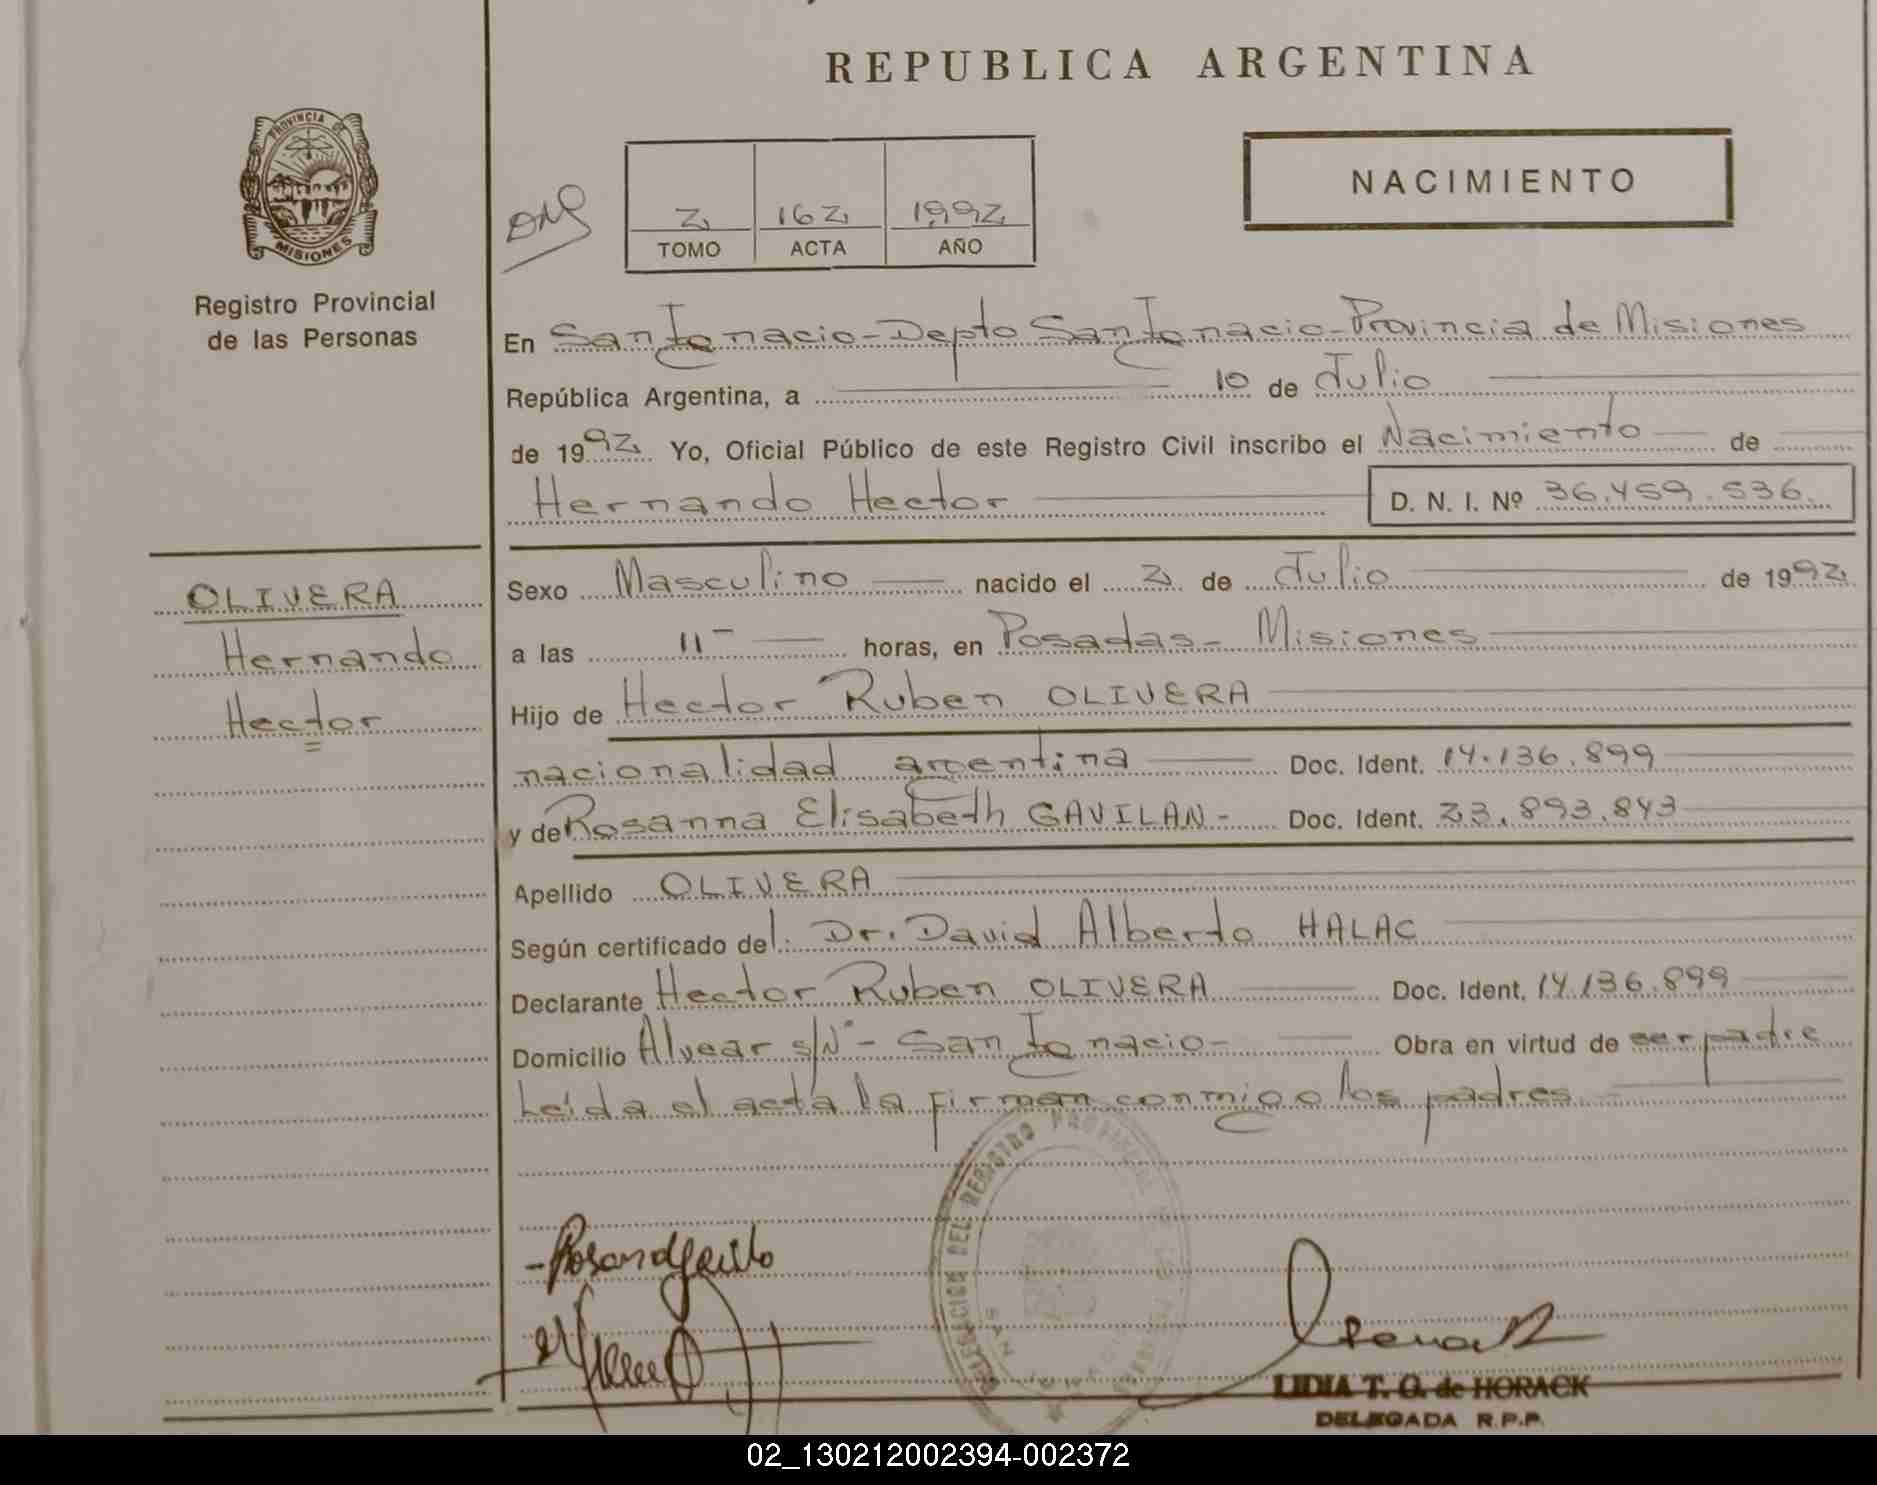 REPUBLICA ARGENTINA
PROVINCIA DE
MISIONES
Registro Provincial
de las Personas
NACIMIENTO
2 162 1992
TOMO ACTA AÑO
En San Ignacio - Depto San Ignacio - Provincia de Misiones
República Argentina, a 10 de Julio
de 1992 Yo, Oficial Público de este Registro Civil inscribo el Nacimiento de
Hernando Hector D. N. I. Nº 36.459.536.
OLIVERA
Hernando
Hector
Sexo Masculino nacido el 2 de Julio de 1992
a las 11 horas, en Posadas - Misiones
Hijo de Hector Ruben OLIVERA
nacionalidad argentina Doc. Ident. 14.136.899
y de Rosanna Elisabeth GAVILAN - Doc. Ident. 23.893.843
Apellido OLIVERA
Según certificado del: Dr. David Alberto HALAC
Declarante Hector Ruben OLIVERA Doc. Ident. 14.136.899
Domicilio Alvear s/Nº - San Ignacio - Obra en virtud de ser padre
Leída el acta la firman conmigo los padres
DELEGACION DEL REGISTRO PROVINCIAL DE LAS PERSONAS
SAN IGNACIO
LIDIA T. O. de HORACK
DELEGADA R.P.P.
02_130212002394-002372